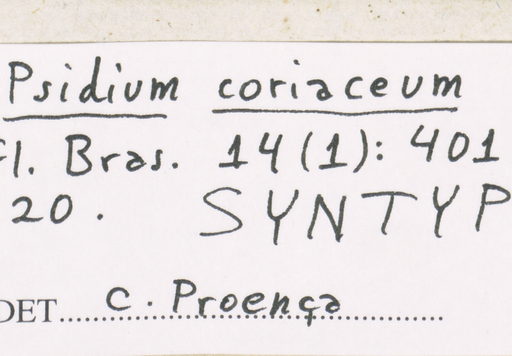 Psidium coriaceum
Fl. Bras. 14(1): 401
20. SYNTYP
DET.....C. Proença.....